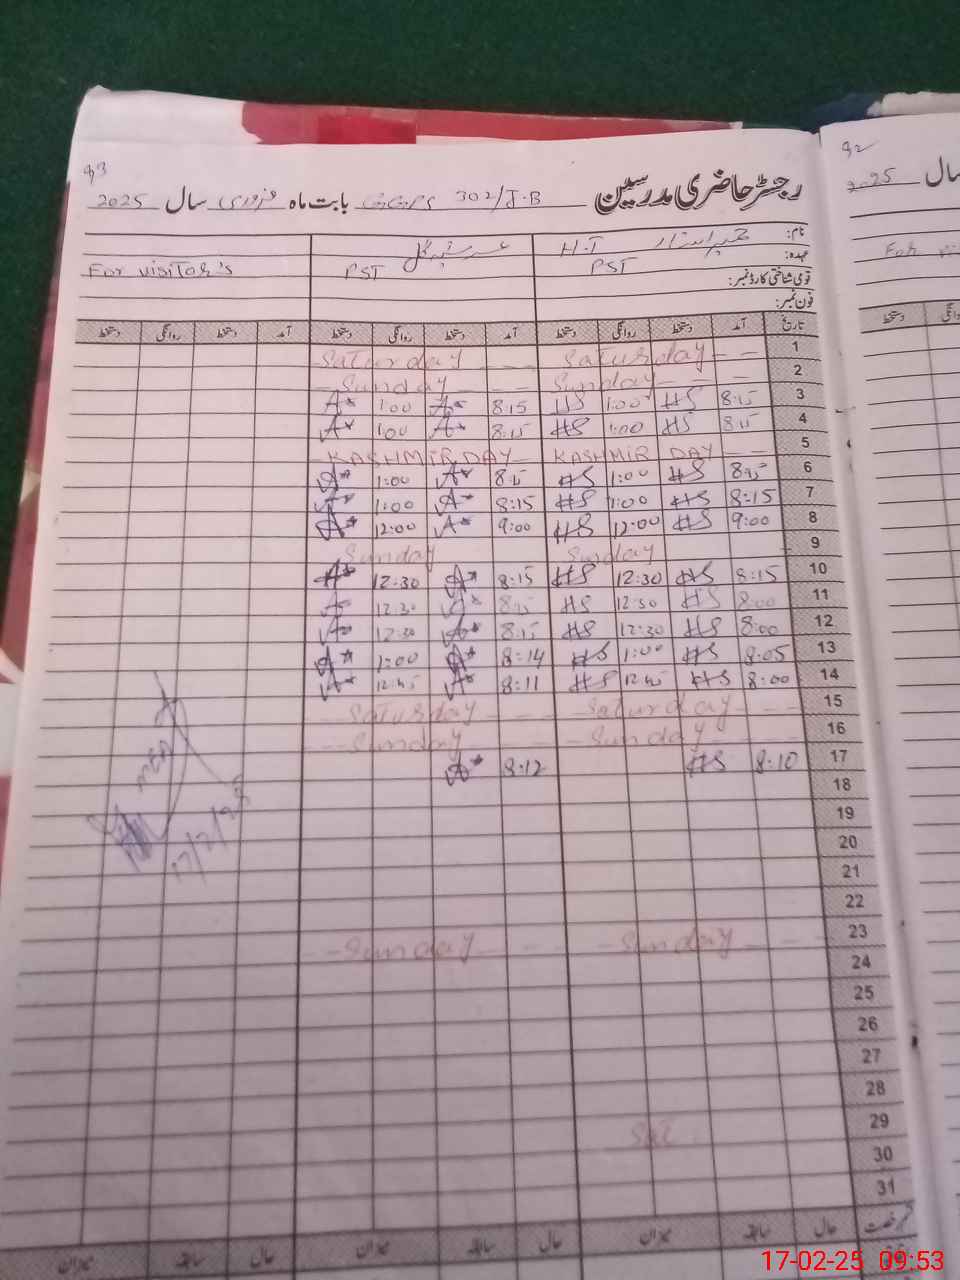 93
رجسٹر حاضری مدرسین 302/J.B بابت ماہ فروری سال 2025
نام:
عہدہ: H.T PST
PST
For visitor's
قومی شناختی کارڈ نمبر:
فون نمبر:
تاریخ آمد دستخط روانگی دستخط آمد دستخط روانگی دستخط آمد دستخط روانگی دستخط
1 Saturday Saturday
2 Sunday Sunday
3 8:15 HS 1:00 HS 8:15 A* 1:00 A*
4 8:15 HS 1:00 HS 8:15 A* 1:00 A*
5 KASHMIR DAY KASHMIR DAY
6 8:15 HS 1:00 HS 8:15 A* 1:00 A*
7 8:15 HS 1:00 HS 8:15 A* 1:00 A*
8 9:00 HS 12:00 HS 9:00 A* 12:00 A*
9 Sunday Sunday
10 8:15 HS 12:30 HS 8:15 A* 12:30 A*
11 8:00 HS 12:30 HS 8:15 A* 12:30 A*
12 8:00 HS 12:30 HS 8:15 A* 12:30 A*
13 8:05 HS 1:00 HS 8:14 A* 1:00 A*
14 8:00 HS 12:45 HS 8:11 A* 12:45 A*
15 Saturday Saturday
16 Sunday Sunday
17 8:10 HS 8:12 A*
18
19
17/2/25
20
21
22
23 Sunday Sunday
24
25
26
27
28
29 Sat
30
31
حال سابقہ میزان حال سابقہ میزان حال سابقہ میزان
92
سال 2025
For
روانگی دستخط
17-02-25 09:53